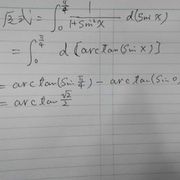 原式 = ∫₀^{π/4} 1/(1+sin²x) d(sin x)
= ∫₀^{π/4} d [arctan(sin x)]
= arc tan(sin π/4) - arc tan(sin 0
= arc tan √2/2